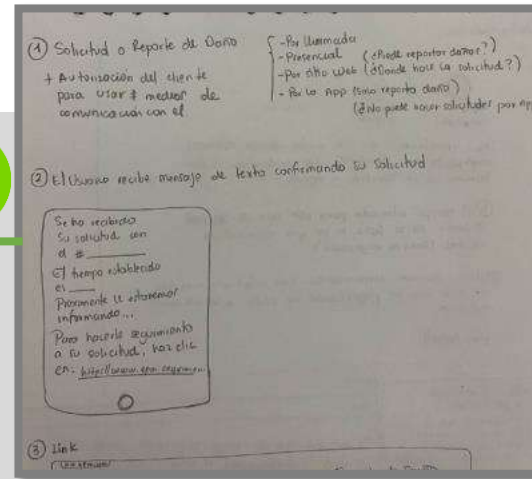 ① Solicitud o Reporte de Daño
+ Autorización del cliente
para usar ≠ medios de
comunicación con el.
- Por llamada
- Presencial
- Por sitio web (¿Puede reportar daños?)
(¿Donde hace la solicitud?)
- Por la App (solo reporta daño)
(¿No puede hacer solicitudes por app
② El usuario recibe mensaje de texto confirmando su Solicitud
Se ha recibido
su solicitud con
el #
El tiempo establecido
es
Proximamente le estaremos
informando...
Para hacerle seguimiento
a su solicitud, haz clic
en: http://www.epm.
③ Link